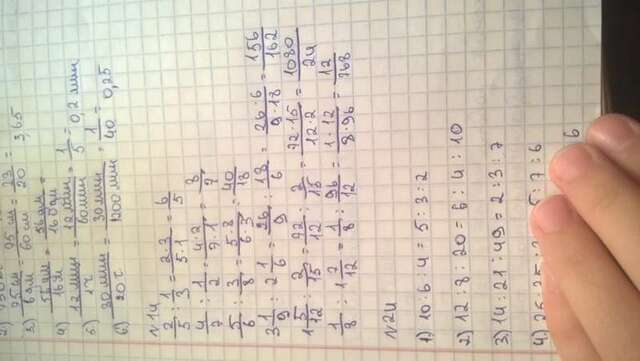 3) 75 см / 6 дм = 75 см / 60 см = 23/20 = 3,65
4) 56 дм / 16 м = 56 дм / 160 дм =
5) 12 мин / 1 ч = 12 мин / 60 мин = 1/5 = 0,2 мин
6) 30 мин / 20 ч = 30 мин / 1200 мин = 1/40 = 0,25
№1и
2/5 : 1/3 = 2·3/5·1 = 6/5
4/7 : 1/2 = 4·2/7·1 = 8/7
5/6 : 3/8 = 5·8/6·3 = 40/18
3 1/9 : 2 1/6 = 26/9 : 18/6 = 26·6/9·18 = 156/162
1 5/12 : 2/15 = 72/12 : 2/15 = 72·15/12·2 = 1080/24
1/8 : 1 7/12 = 1/8 : 96/12 = 1·12/8·96 = 12/768
№2и
1) 10:6:4 = 5:3:2
2) 12:8:20 = 6:4:10
3) 14:21:49 = 2:3:7
4) 25:35: 5:7:6
6